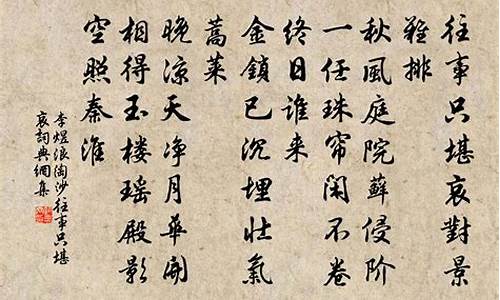 往事只堪哀對景
難排
秋風庭院蘚侵階
一任珠帘閑不卷
終日誰来
金鎖已沉埋壮氣
蒿莱
晚凉天净月華開
相得玉楼瑶殿影
空照秦淮
李煜浪淘沙往事只堪
哀詞典網集